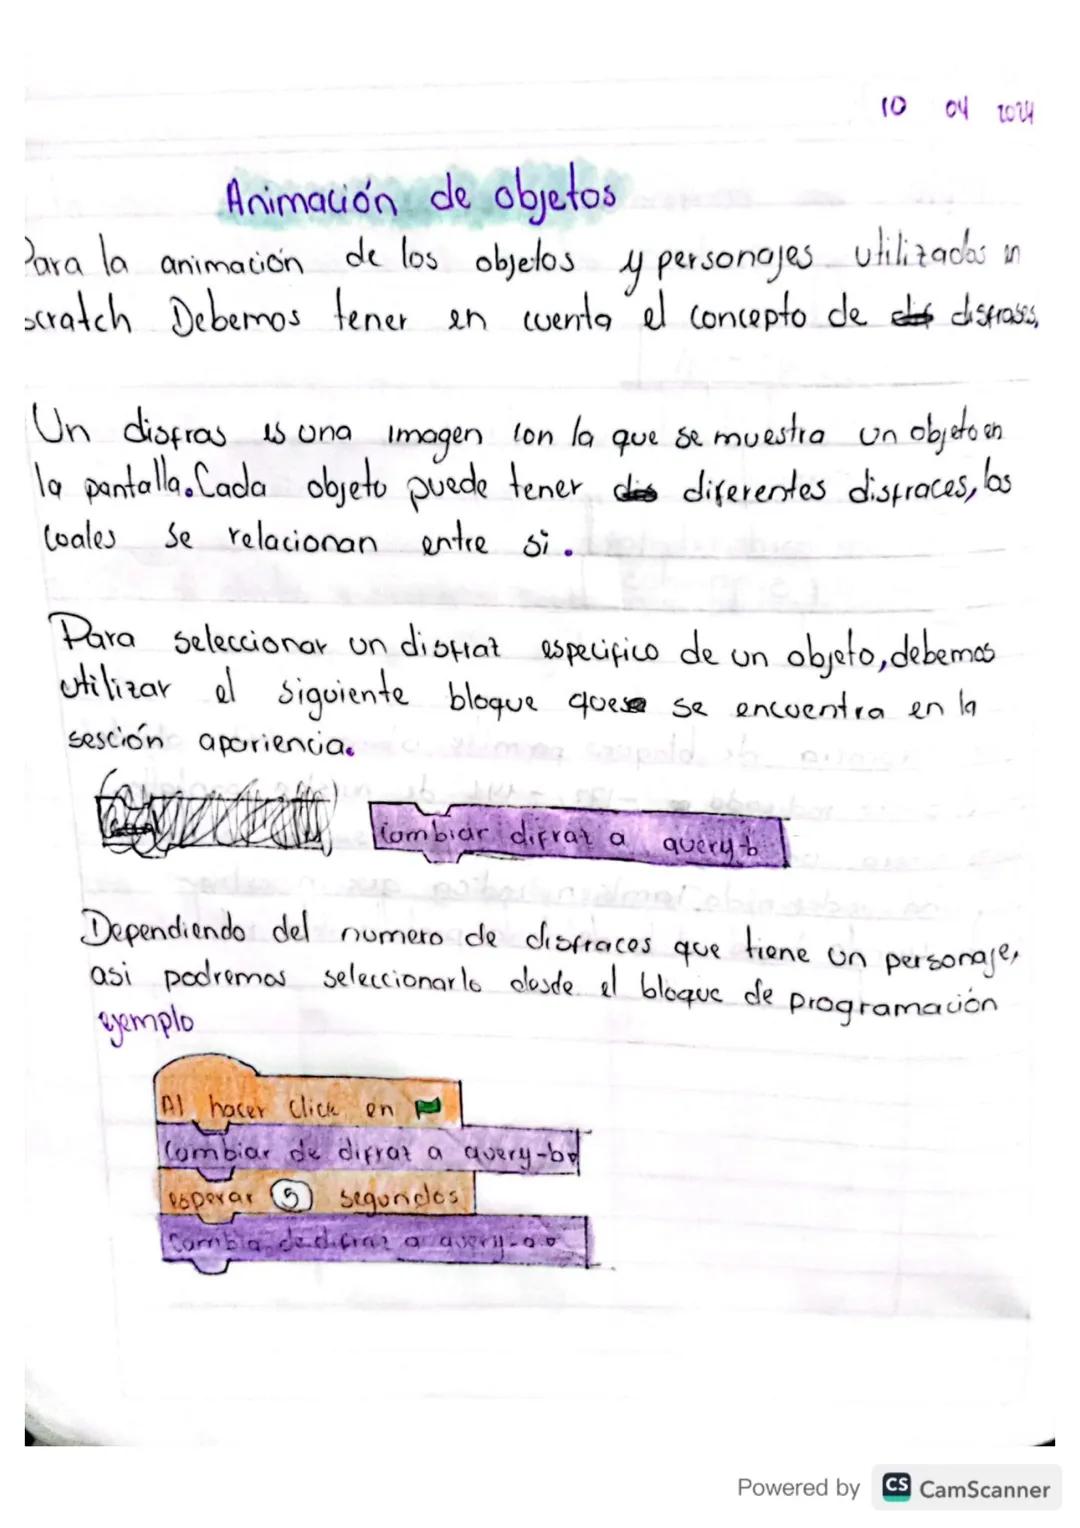 10 04 2024
Animación de objetos
Para la animación de los objetos y personajes utilizados en
scratch Debemos tener en cuenta el concepto de disfrases,
Un disfras es una imagen con la que se muestra un objeto en
la pantalla. Cada objeto puede tener diferentes disfraces, los
cuales se relacionan entre si.
Para seleccionar un disfraz especifico de un objeto, debemos
utilizar el siguiente bloque que se encuentra en la
sesción apariencia.
Cambiar difraz a query-b
Dependiendo del numero de disfraces que tiene un personaje,
asi podremos seleccionarlo desde el bloque de programación
ejemplo
Al hacer Click en
Cambiar de difraz a query-b
esperar 5 segundos
Cambia de difraz a query-a
Powered by CS CamScanner